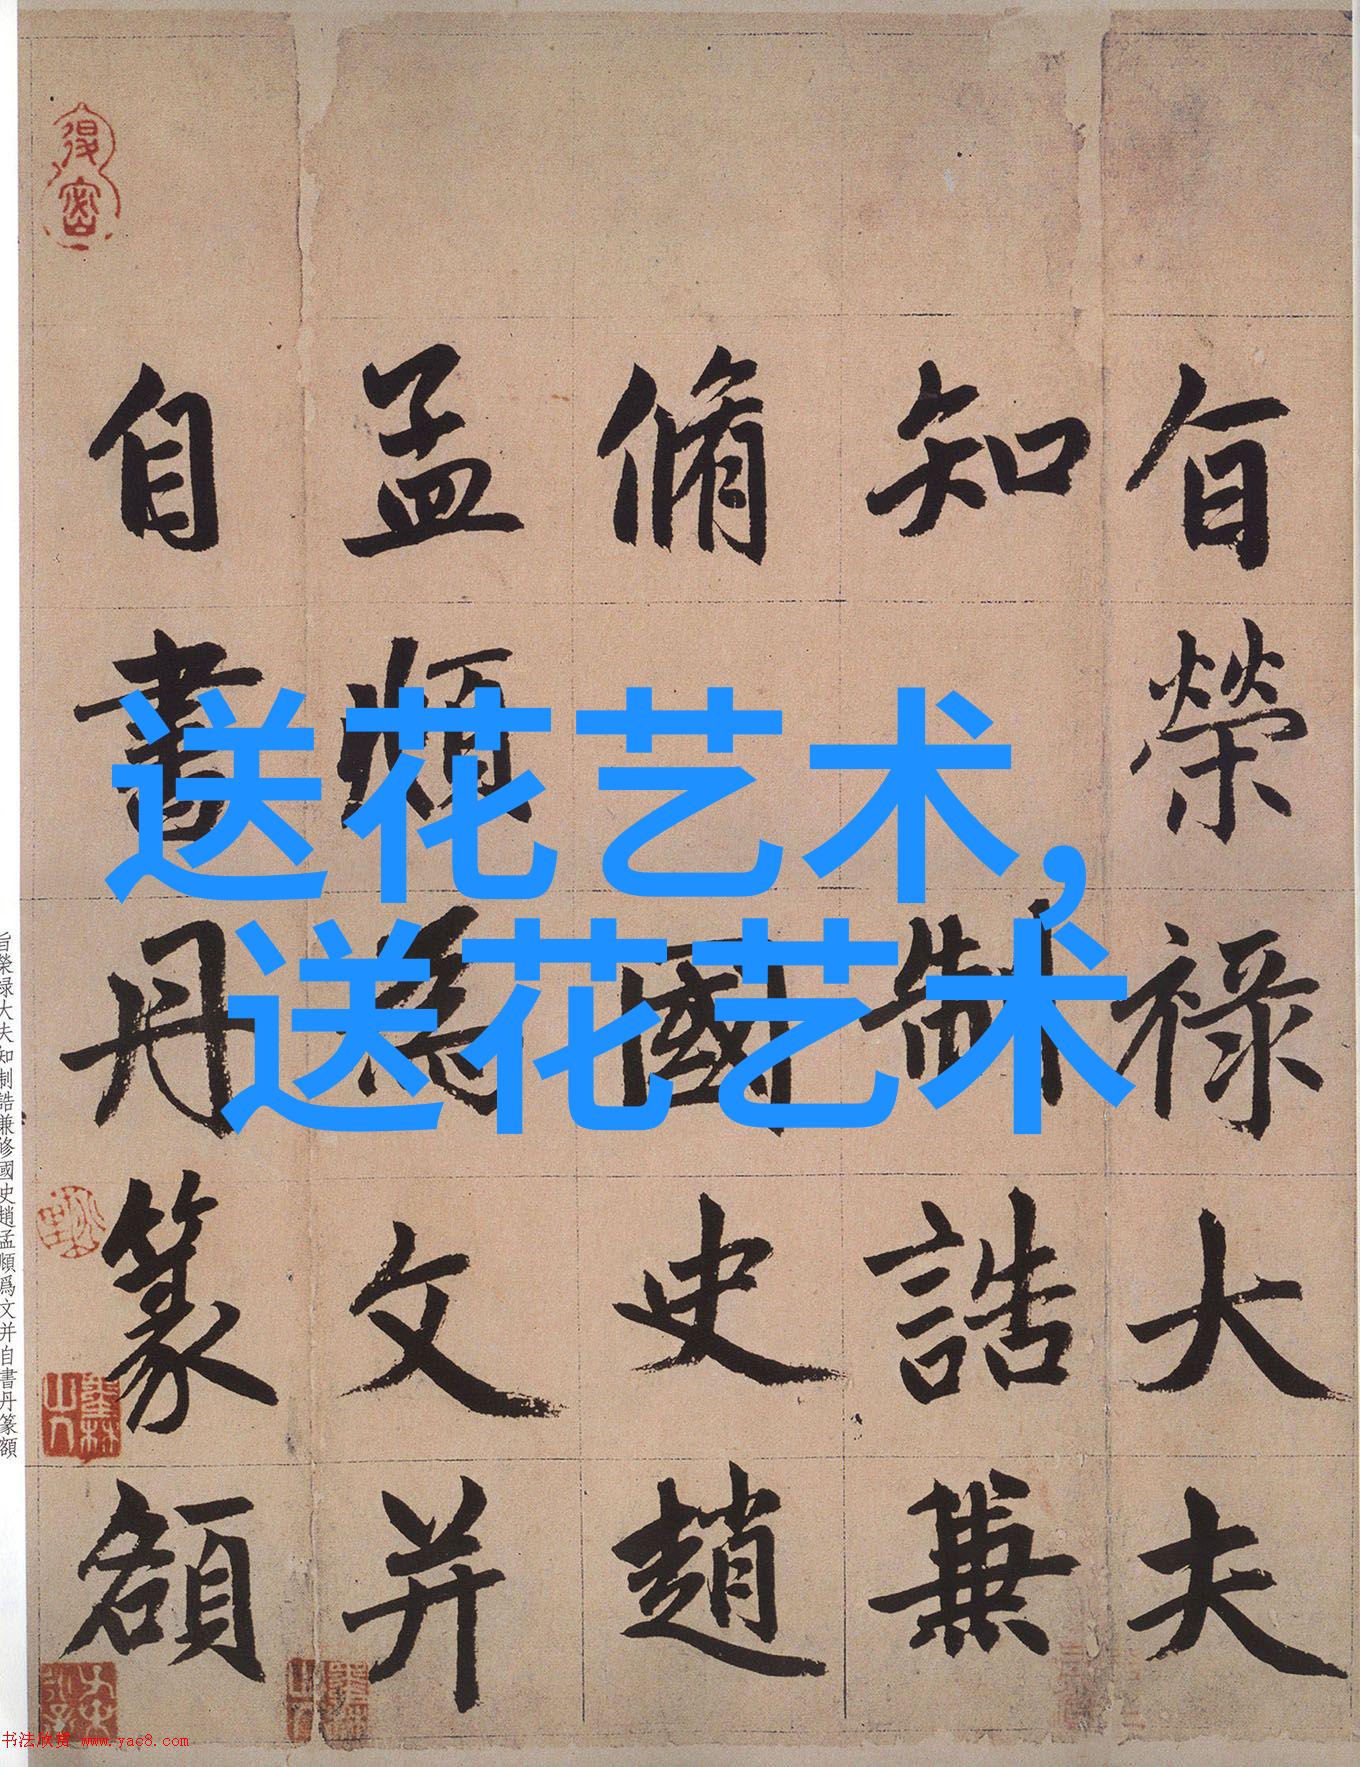 旨榮祿大夫
知制誥兼
脩國史趙
孟頫為文并
自書丹篆額
送花艺术,
送花艺术
旨榮禄大夫知制誥兼修國史趙孟頫爲文并自書丹篆額
书法欣赏 www.yac8.com